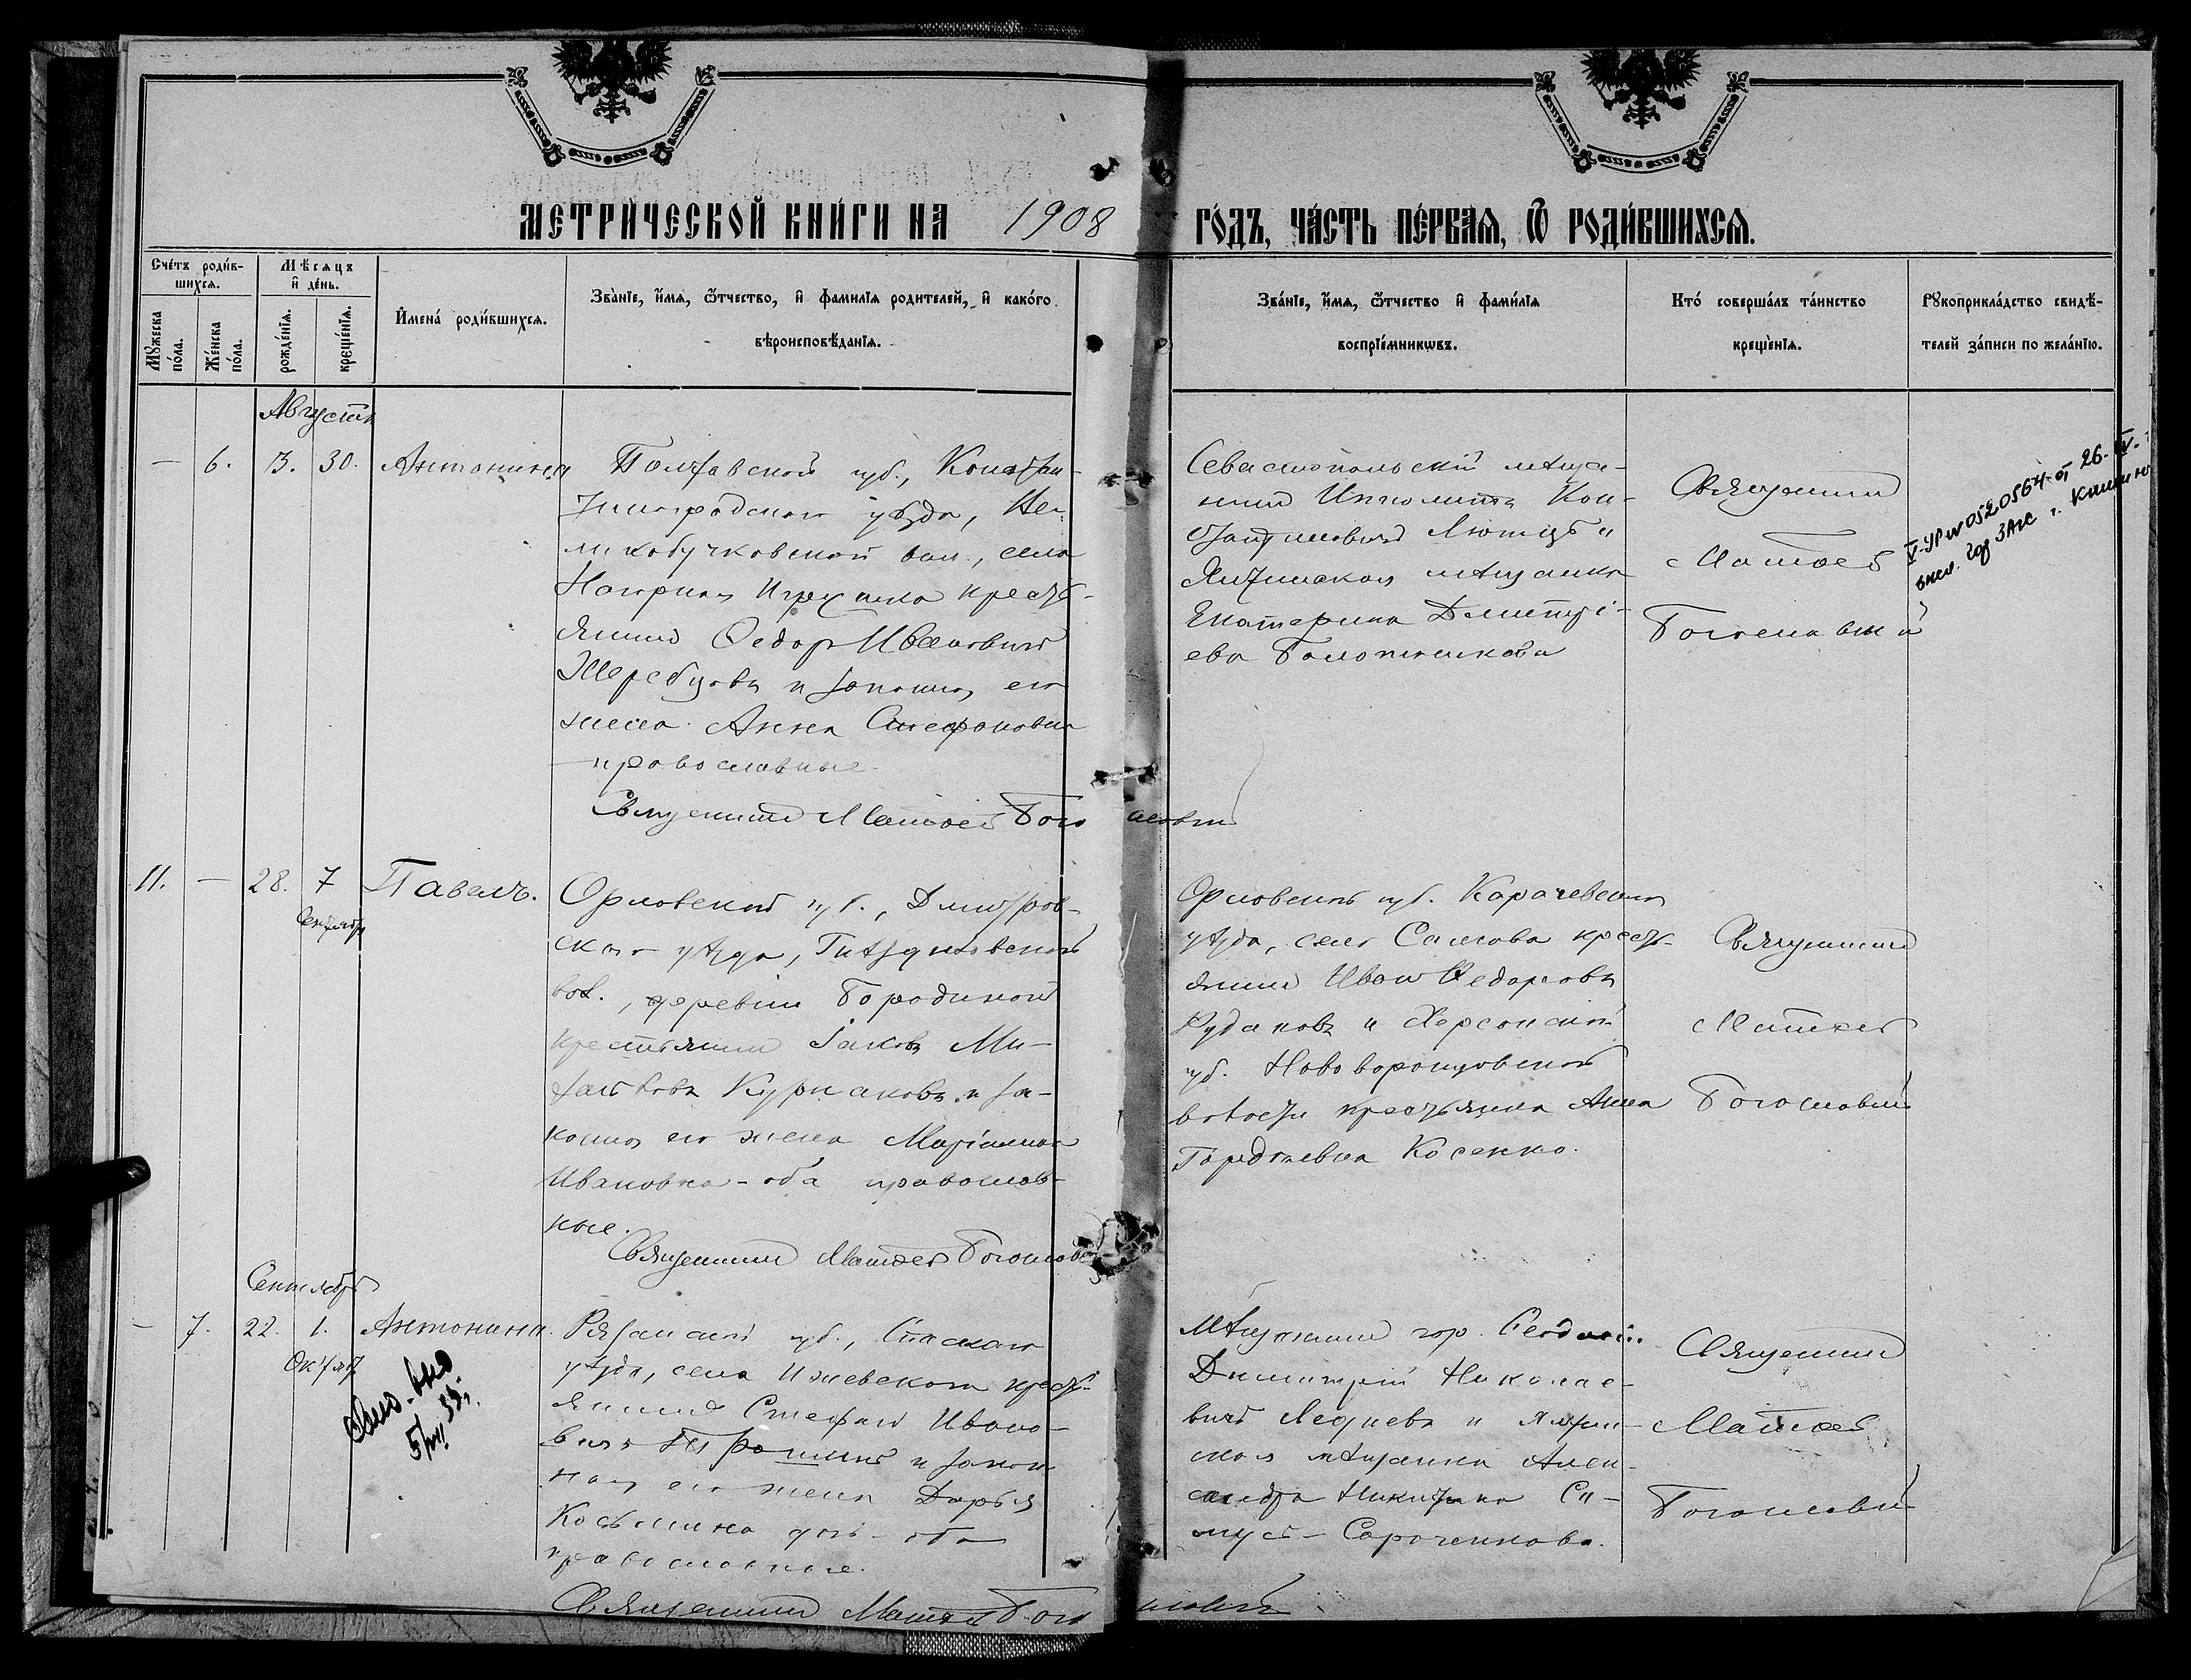 МЕТРИ́ЧЕСКОЙ КНИ́ГИ НА 1908 ГО́ДЪ, ЧА́СТЬ ПЕ́РВАѦ, Ѿ РОДИ́ВШИХСѦ.
Сче́тъ роди́в-
шихсѧ.
Мꙋжеска по́ла.
Же́нска по́ла.
Мѣ́сѧцъ
и҆ де́нь.
рожде́нїѧ.
креще́нїѧ.
И҆мена́ роди́вшихсѧ.
Зва́нїе, и҆́мѧ, ѻ҆́тчество, и҆ фами́лїѧ роди́телей, и҆ како́го
вѣроисповѣ́данїѧ.
Зва́нїе, и҆́мѧ, ѻ҆́тчество и҆ фами́лїѧ
воспрїе́мникѡвъ.
Кто́ соверша́лъ та́инство
креще́нїѧ.
Рꙋкоприкла́дство свидѣ́-
телей за́писи по жела́нїю.
Августъ
— 6. 13. 30. Антонина
Полтавской губ., Констан-
тиноградскаго уѣзда,
вол., села
кресть-
янинъ Ѳедоръ Ивановичъ
Жеребцовъ и законная его
жена Анна Стефановна
православные.
Священникъ Матѳей Богословскій
Севастопольскій мѣща-
нинъ
и
Ялтинская мѣщанка
Екатерина Димитрі-
ева
Священникъ
Матѳей
Богословскій
№ 0520564 от 26-IV-
ЗАГС г.
11. — 28. 7 Павелъ.
Сентября
Орловской губ., Дмитров-
скаго уѣзда,
вол., деревни Бородиной
крестьянинъ Іаковъ Ми-
хайловъ Курнаковъ и за-
конная его жена Маріамна
Ивановна - оба православ-
ные.
Священникъ Матѳей Богословскій
Орловской губ. Карачевскаго
уѣзда, села кресть-
янинъ Иванъ Ѳедоровъ
Рудаковъ и Херсонской
губ. Нововоронцовской
волости крестьянка Анна
Гордѣевна Косенко.
Священникъ
Матѳей
Богословскій
Сентябрь
— 7. 22. 1. Антонина.
Октяб
Рязанской губ., Спаскаго
уѣзда, села Ижевскаго кресть-
янинъ Стефанъ Ивано-
вичъ и закон-
ная его жена Дарья
Косьмина дочь - оба
православные.
Священникъ Матѳей Богословскій
Мѣщанинъ гор.
Димитрій Николае-
вичъ Ледневъ и Ялтин-
ская мѣщанка Алек-
сандра Никитина
Сороченкова.
Священникъ
Матѳей
Богословскій